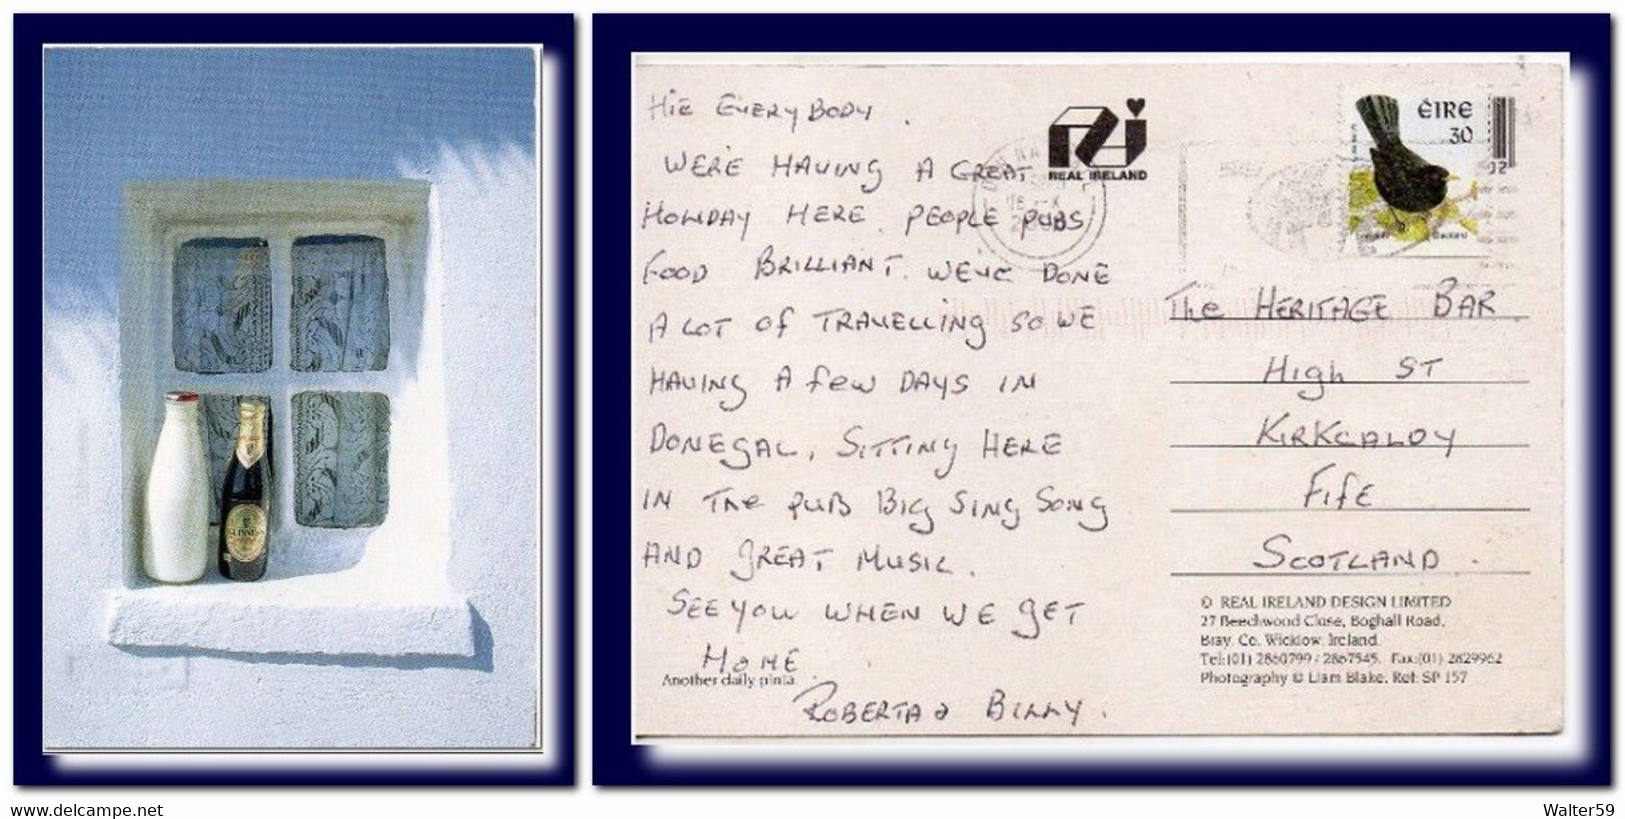 GUINNESS
HIE EVERYBODY.
WERE HAVING A GREAT
HOLIDAY HERE. PEOPLE PUBS
FOOD BRILLIANT. WE'VE DONE
A LOT OF TRAVELLING SO WE
HAVING A FEW DAYS IN
DONEGAL, SITTING HERE
IN THE PUB BIG SING SONG
AND GREAT MUSIC.
SEE YOU WHEN WE GET
HOME
Another daily pinta.
ROBERTA & BILLY.
REAL IRELAND
ÉIRE
30
The HERITAGE BAR
HIGH ST
KIRKCALDY
FIFE
SCOTLAND.
© REAL IRELAND DESIGN LIMITED
27 Beechwood Close, Boghall Road,
Bray, Co. Wicklow, Ireland.
Tel:(01) 2860799 / 2867545. Fax:(01) 2829962
Photography © Liam Blake. Ref: SP 157
delcampe.net
Walter59